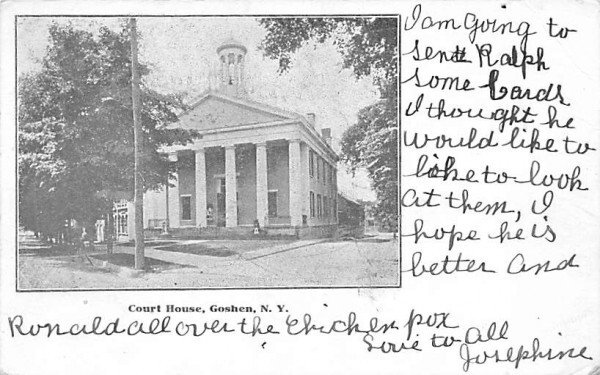 I am Going to
send Ralph
some Cards
I thought he
would like to
like to look
at them, I
hope he is
better and
Court House, Goshen, N. Y.
Ronald all over the Chicken pox
Love to All
Josephine